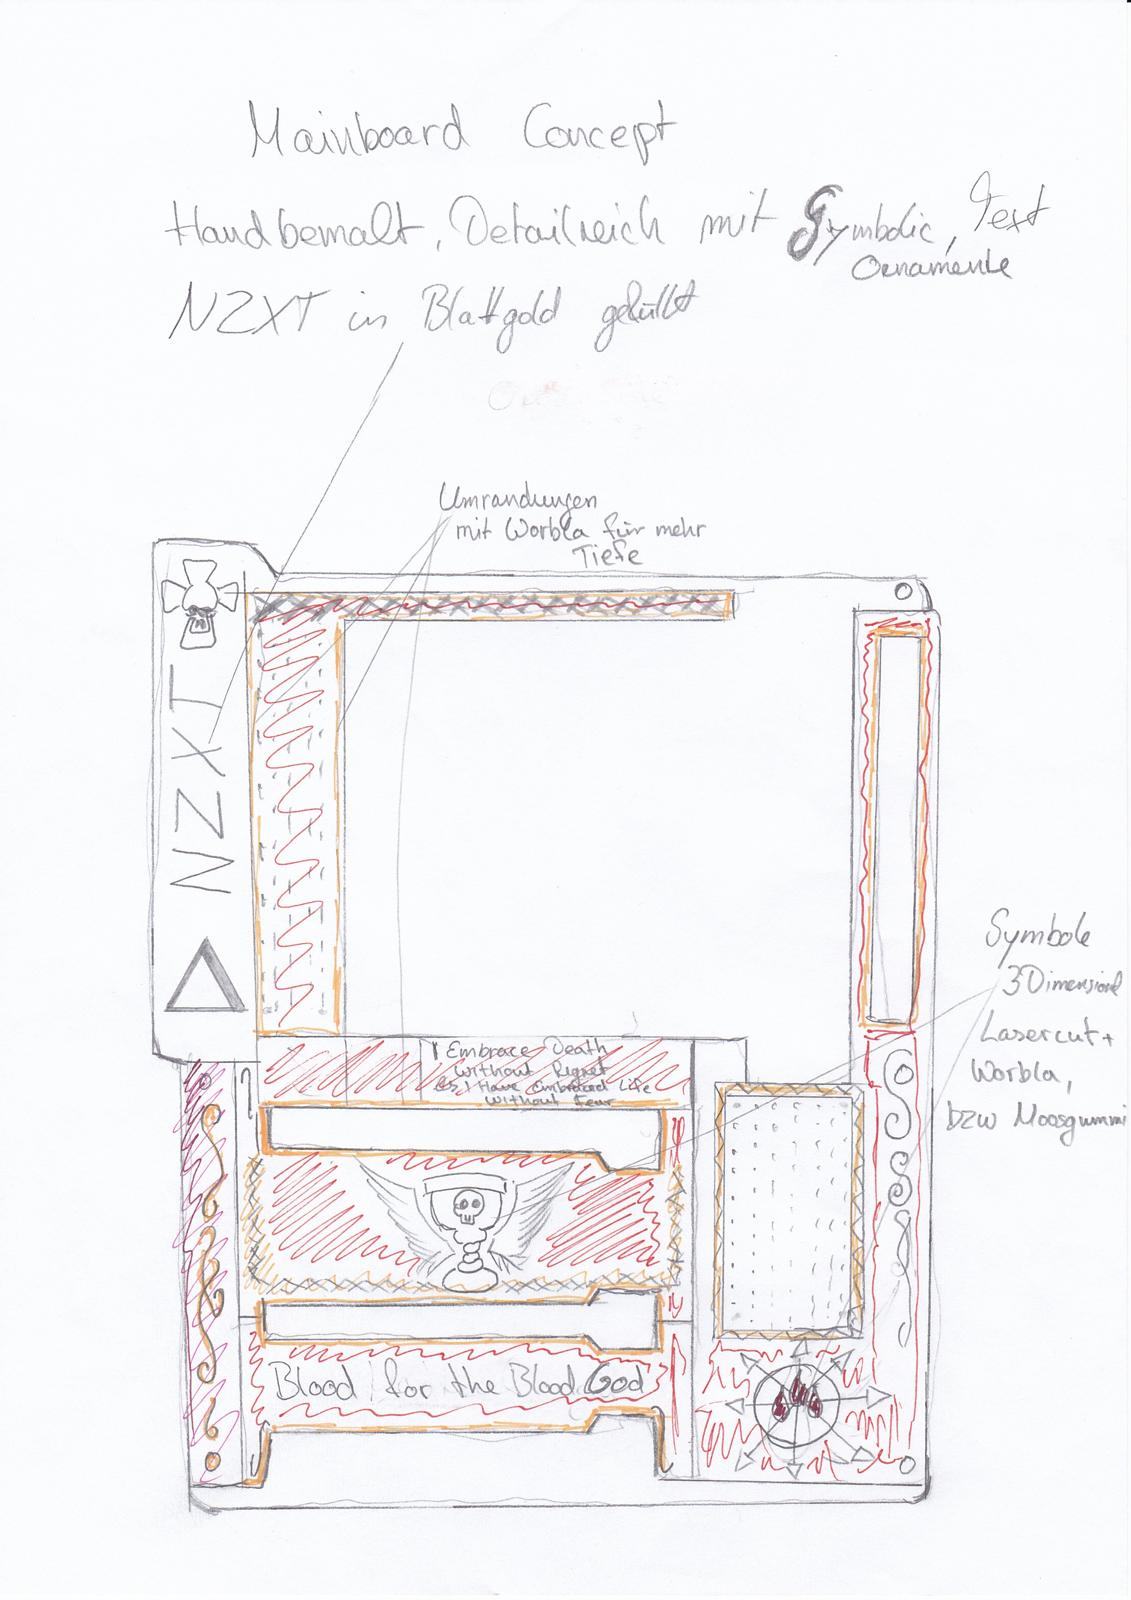 Mainboard Concept
Handbemalt, Detailreich mit Symbolic, Text
Ornamente
NZXT in Blattgold gefüllt
Umrandungen
mit Worbla für mehr
Tiefe
NZXT
Symbole
3Dimensional
Lasercut +
Worbla,
bzw Moosgummi
I Embrace Death
Without Regret
as I Have Embraced Life
Without Fear
Blood for the Blood God